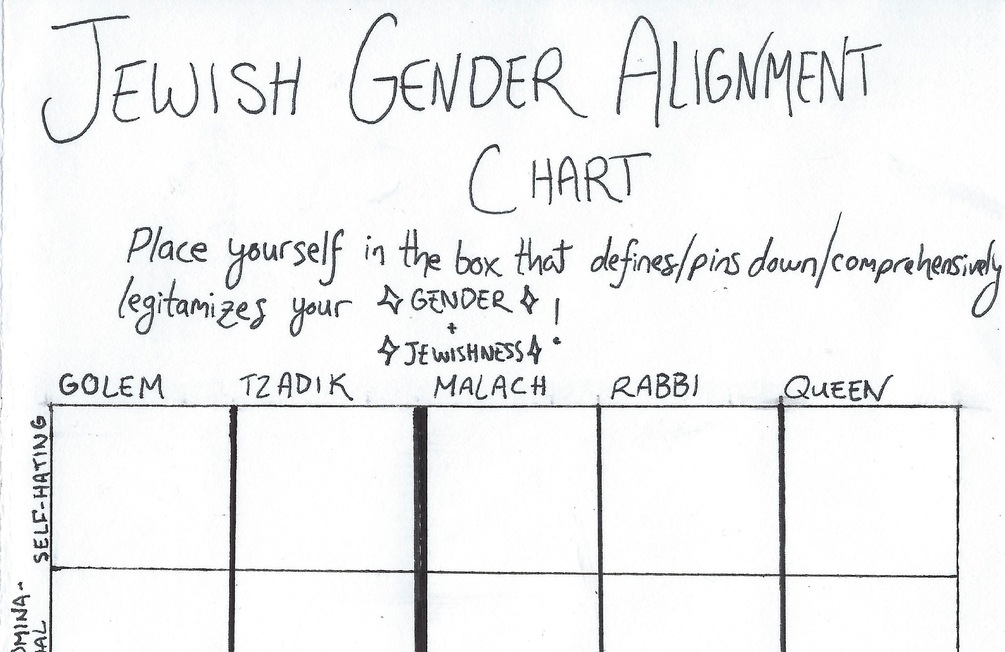 JEWISH GENDER ALIGNMENT
CHART
Place yourself in the box that defines/pins down/comprehensively
legitamizes your ✧ GENDER ✧ !
+
✧ JEWISHNESS ✧
GOLEM TZADIK MALACH RABBI QUEEN
SELF-HATING